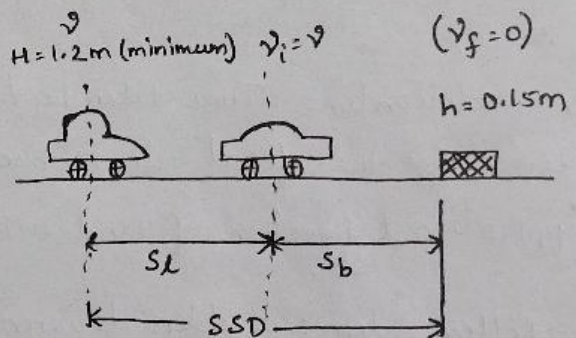 v
H = 1.2 m (minimum) v_i = v (v_f = 0)
h = 0.15m
S_l S_b
SSD